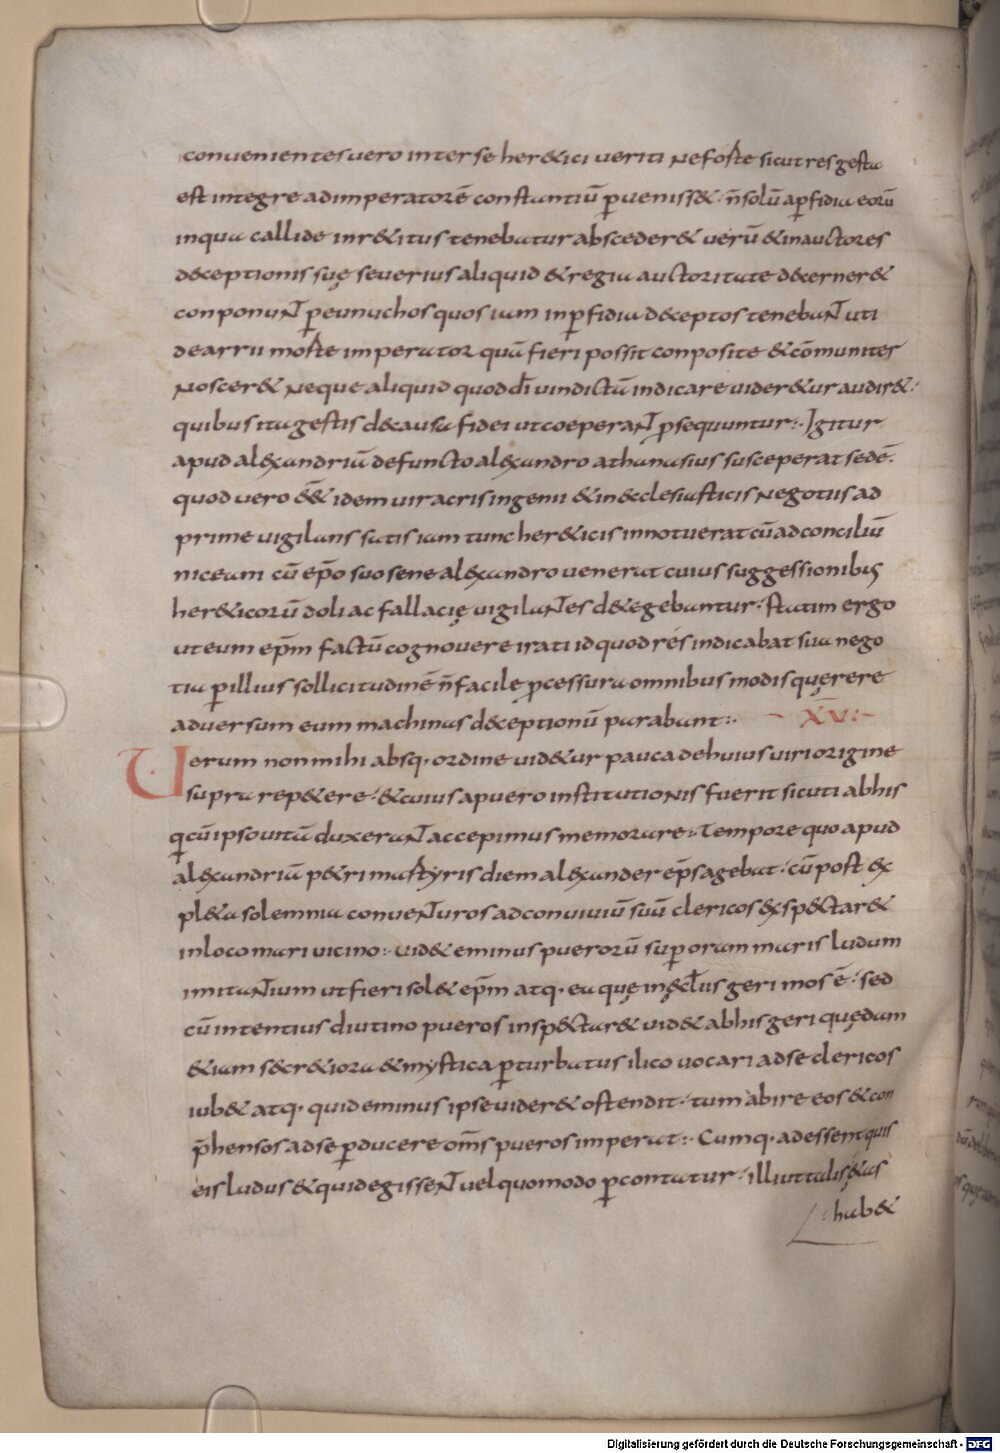 conuenientes uero inter se her&ici ueriti ne foste sicut res gesta
est integre ad imperatorē constantiū p̄ueniss&· n̄ solū a p̄fidia eorū
in qua callide inr&itus tenebatur absceder& uerū & in auctores
deceptionis suę seuerius aliquid & regia auctoritate decerner&
conponunt p̄ eunuchos quos iam in p̄fidia deceptos tenebant uti
de arrii moste imperator quā fieri possit conposite & cōmuniter
noscer& neque aliquid quod dī uindictā indicare uider&ur audir&·
quibus ita gestis de causa fidei ut coeperant p̄sequuntur:· Igitur
apud alexandriā defuncto alexandro athanasius susceperat sedē.
quod uero eēt idem uir acris ingenii & in ecclesiasticis negotiis ad
prime uigilans satis iam tunc her&icis innotuerat cū ad conciliū
niceam cū ep̄o suo sene alexandro uenerat cuius suggessionibus
her&icorū doli ac fallacię uigilantes d&egebantur· statim ergo
ut eum ep̄m factū cognouere irati id quod res indicabat sua nego
tia p̄ illius sollicitudinē n̄ facilę p̄cessura omnibus modis quęrere
aduersum eum machinas deceptionū parabant:· XV:
Uerum non mihi absq· ordine uid&ur pauca de huius uiri origine
supra rep&ere· & cuius a puero institutionis fuerit sicuti ab his
q̄ cū ipso uitā duxerant accepimus memorare:· Tempore quo apud
alexandriā p&ri martyris diem alexander ep̄s agebat· cū post ex
pl&a solemnia conuenturos ad conuiuiū suū clericos exsp&tar&
in loco mari uicino:· uid& eminus puerorū sup̄ oram maris ludum
imitantium ut fieri sol& ep̄m atq· ea quę in ęcl̄iis geri mos ē· sed
cū intentius diutino pueros insp&tar& uid& ab his geri quędam
&iam secr&iora & mystica p̄turbatus ilico uocari ad se clericos
iub& atq· quid eminus ipse uider& ostendit· tum abire eos & con
p̄hensos ad se p̄ducere om̄s pueros imperat:· Cumq· adessent quis
eis ludus & quid egissent uel quomodo p̄contatur· illi ut talis ę&as
hab&
Digitalisierung gefördert durch die Deutsche Forschungsgemeinschaft - DFG